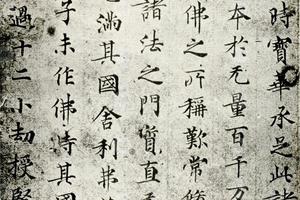 時寶華承足此諸
本於无量百千万
佛之所稱歎常脩
諸法之門質直无
滿其國舍利弗
子未作佛時其國
過十二小劫授堅